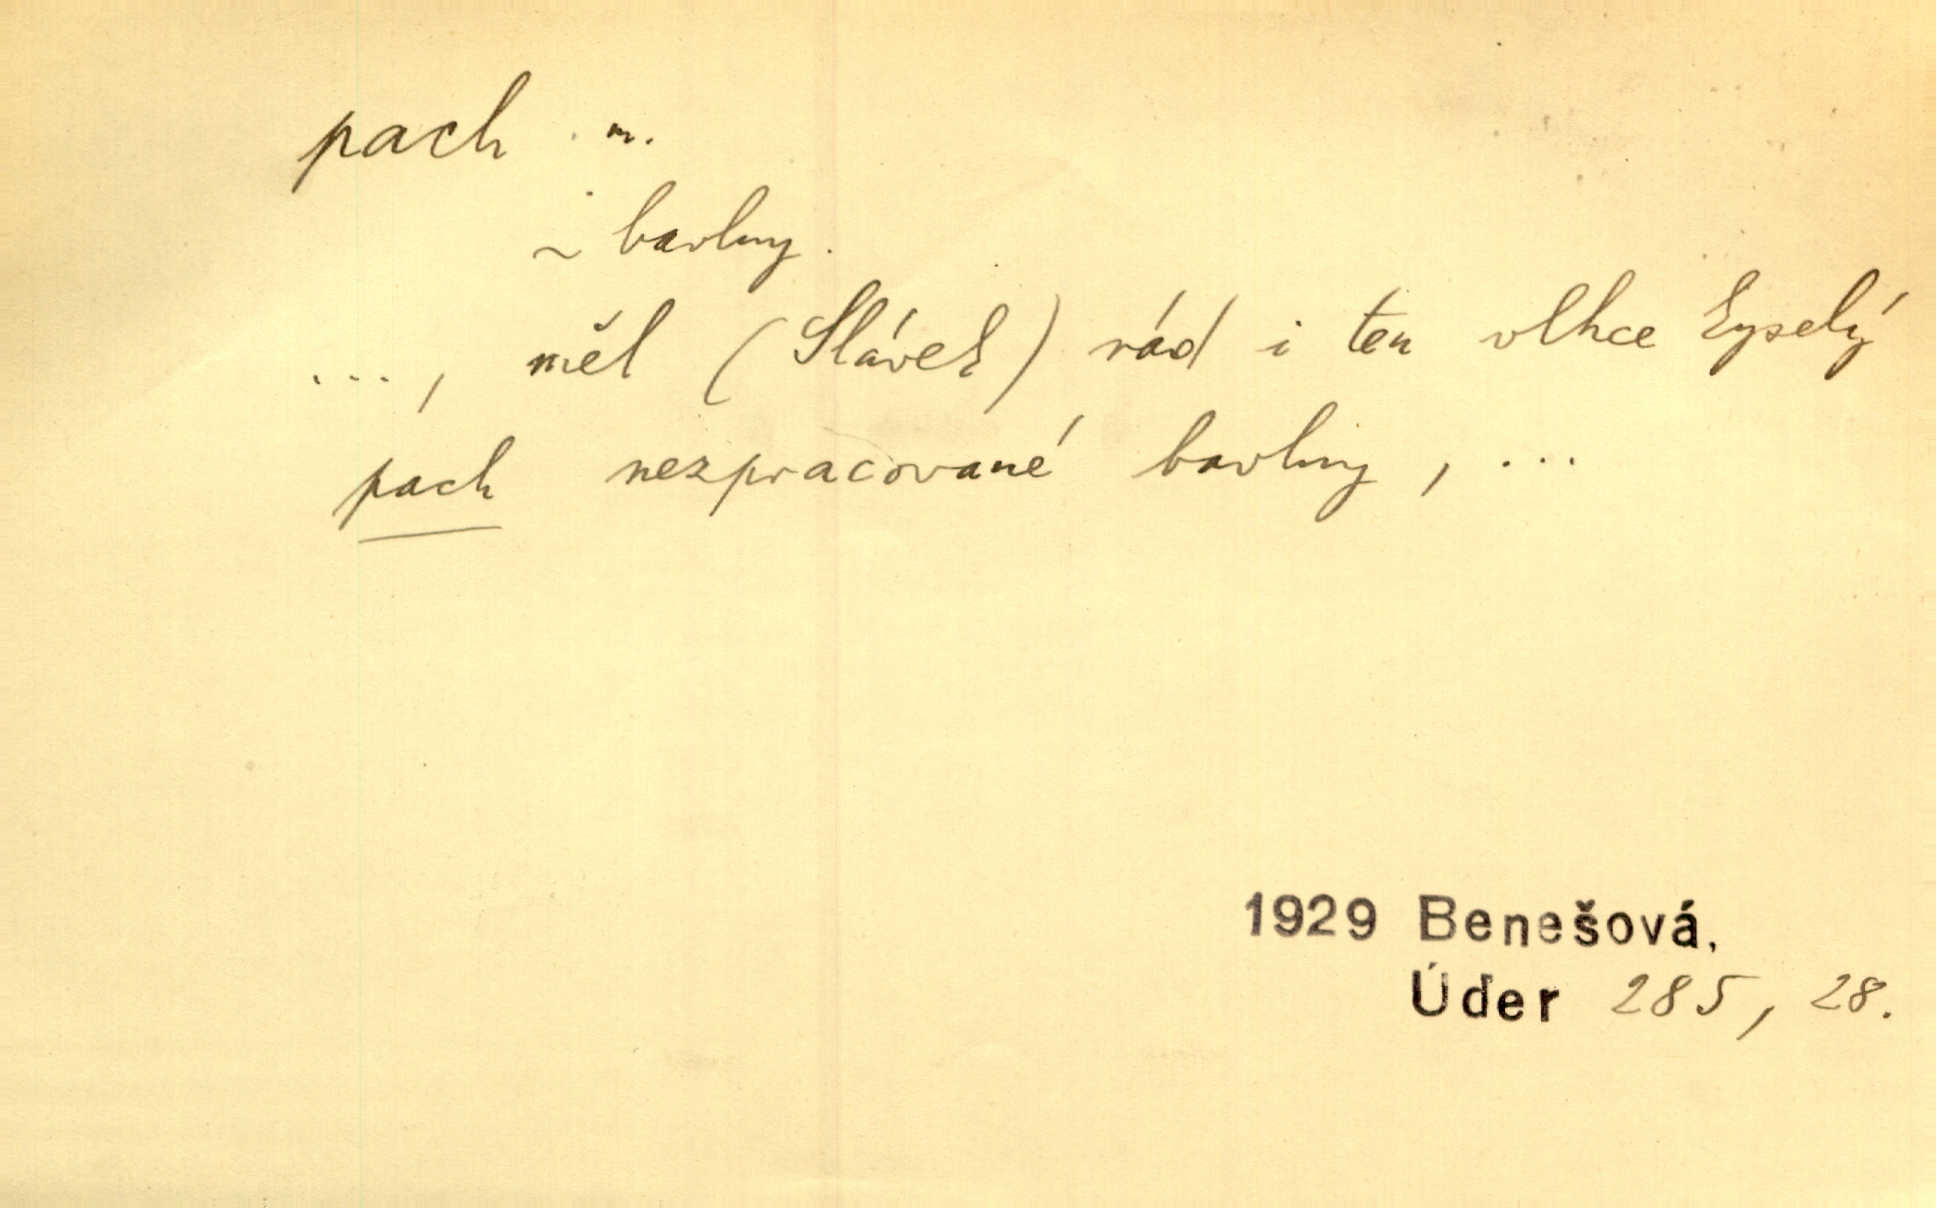 pach m.
~ bavlny.
..., měl (Slávek) rád i ten vlhce kyselý
pach nezpracované bavlny, ...
1929 Benešová,
Úder 285, 28.